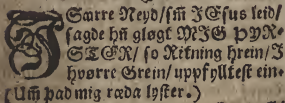 I Særre Neyd/sm̃ JEsus leid/
sagde hñ gløgt MJG ÞYR-
STER/ so Ritning hrein/ J
hvørre Grein/ uppfylltest ein.
(Um̃ þad mig ræda lyster.)